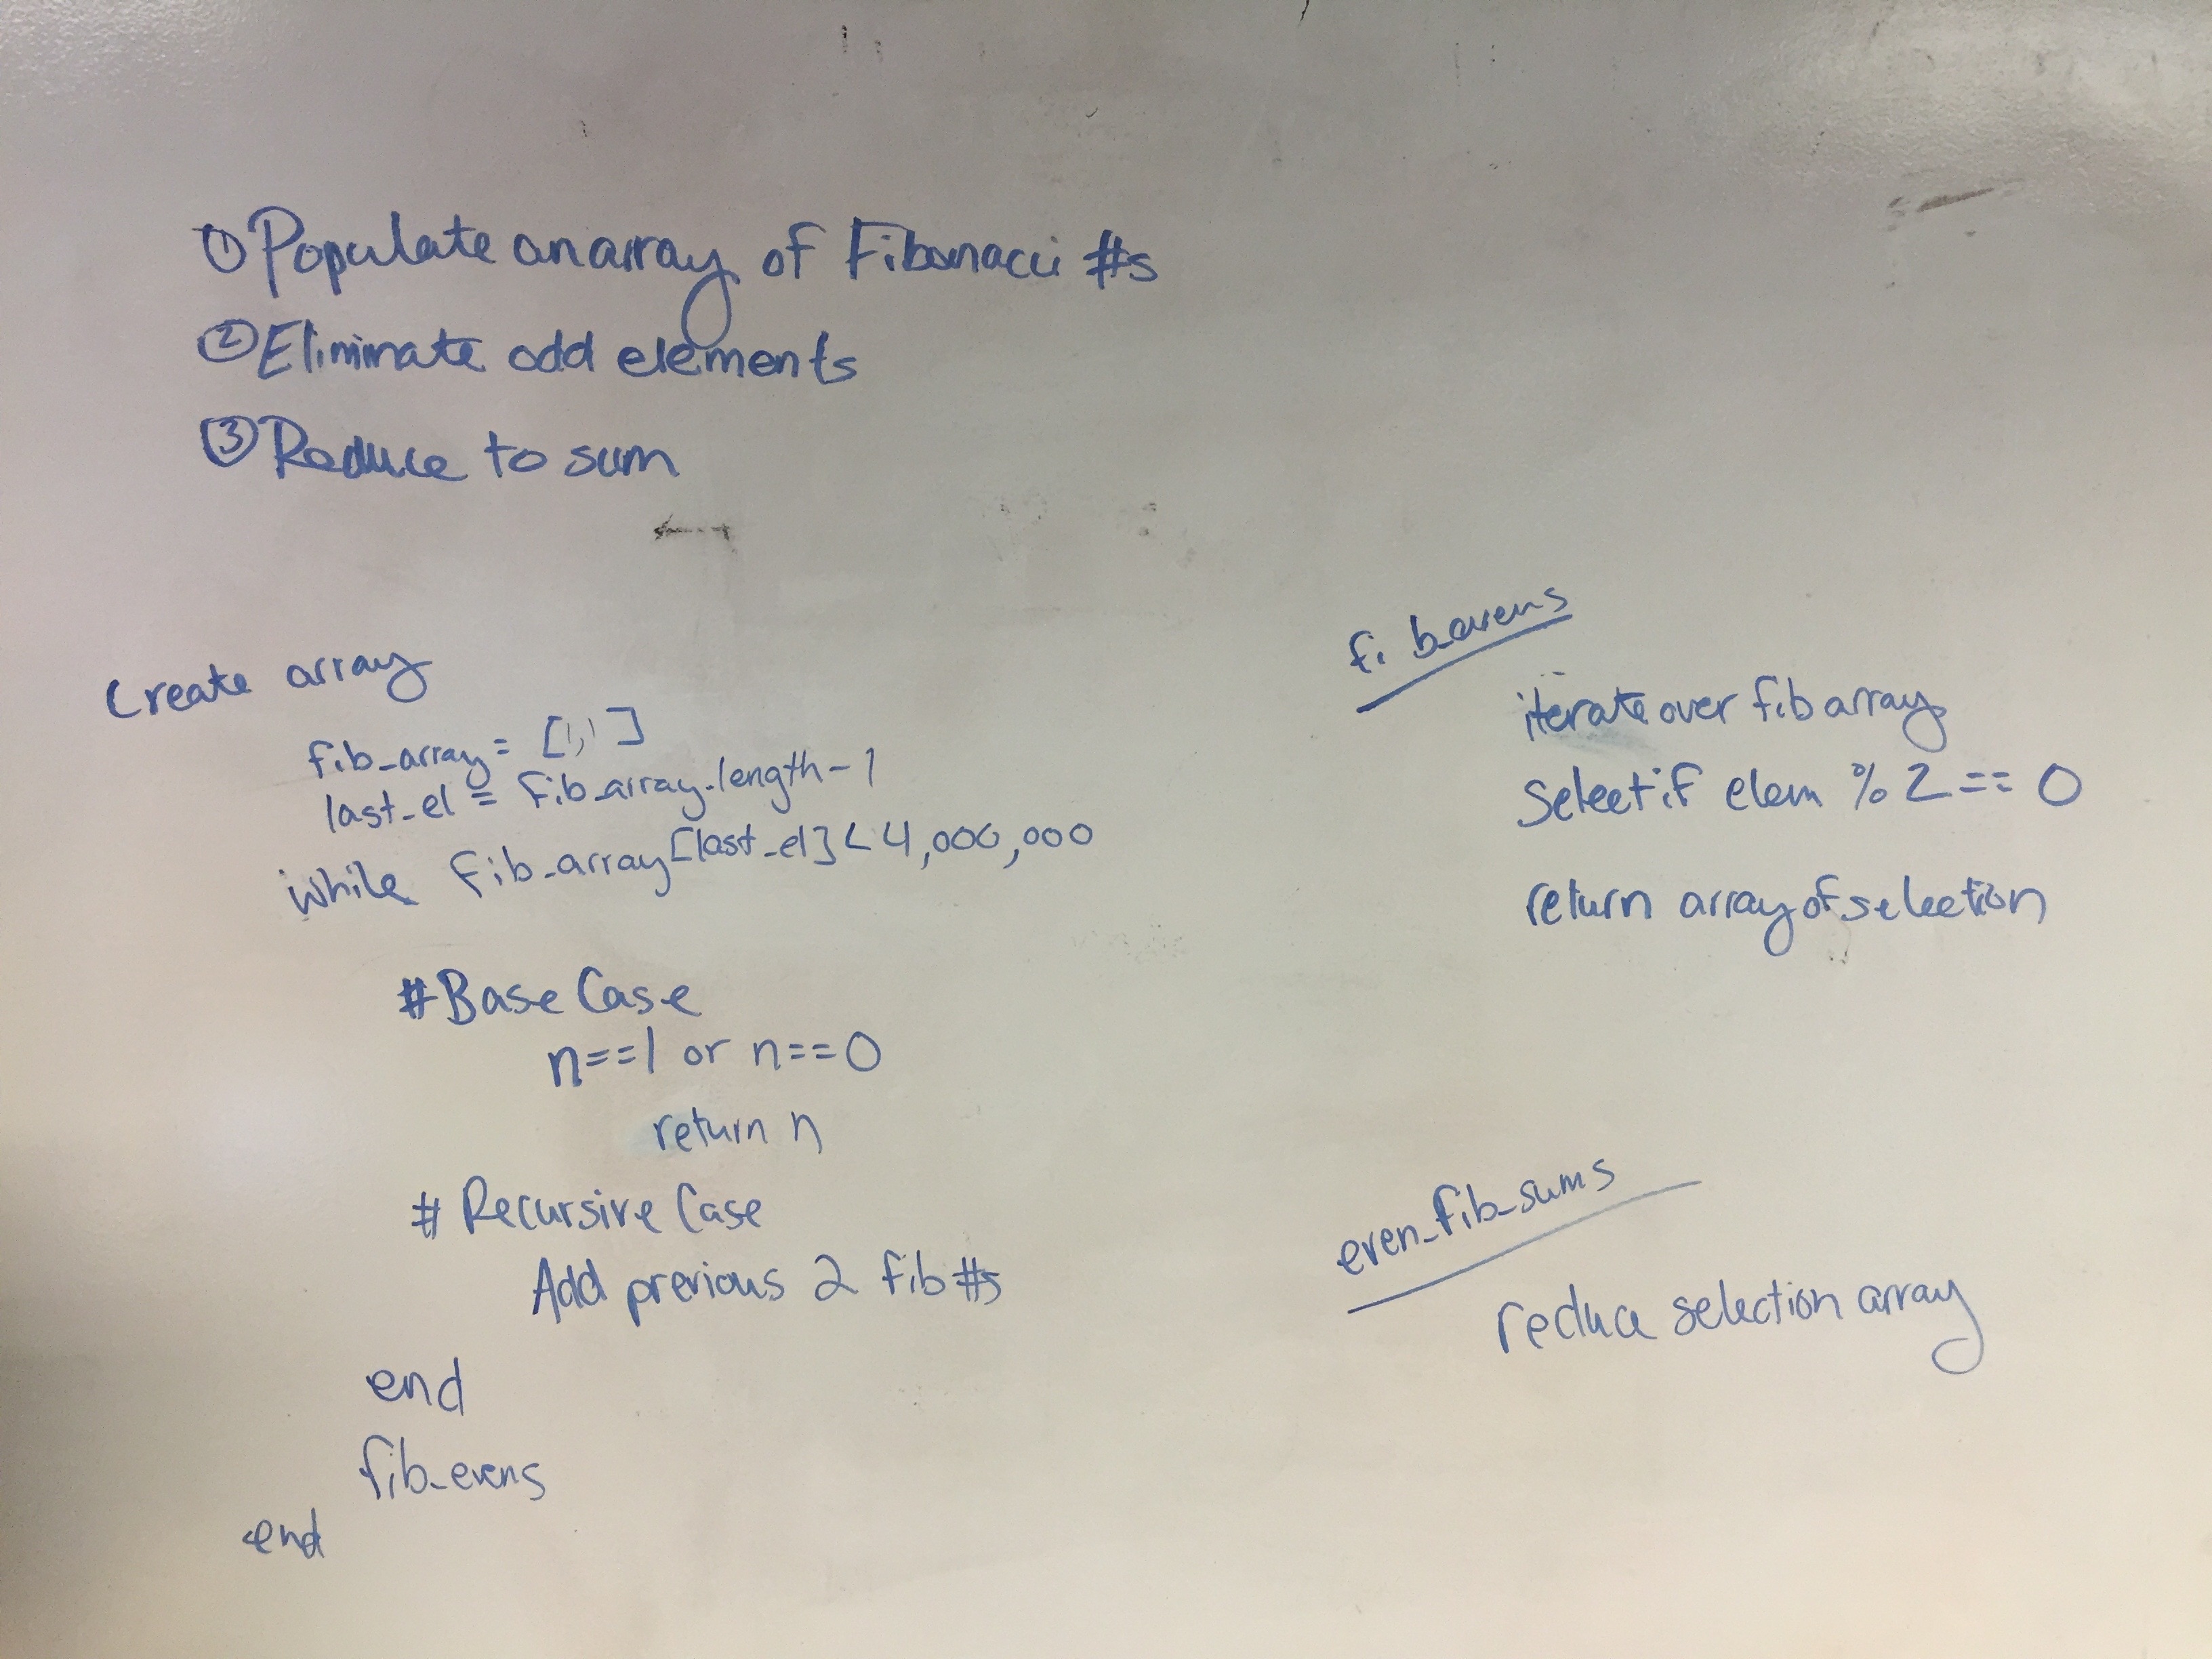 ① Populate an array of Fibonacci #s
② Eliminate odd elements
③ Reduce to sum
Create array
fib_array = [1,1]
last_el = fib_array.length-1
while fib_array[last_el] < 4,000,000
#Base Case
n==1 or n==0
return n
# Recursive Case
Add previous 2 fib #s
end
fib_evens
end
fib_evens
iterate over fib array
Select if elem % 2 == 0
return array of selection
even_fib_sums
reduce selection array